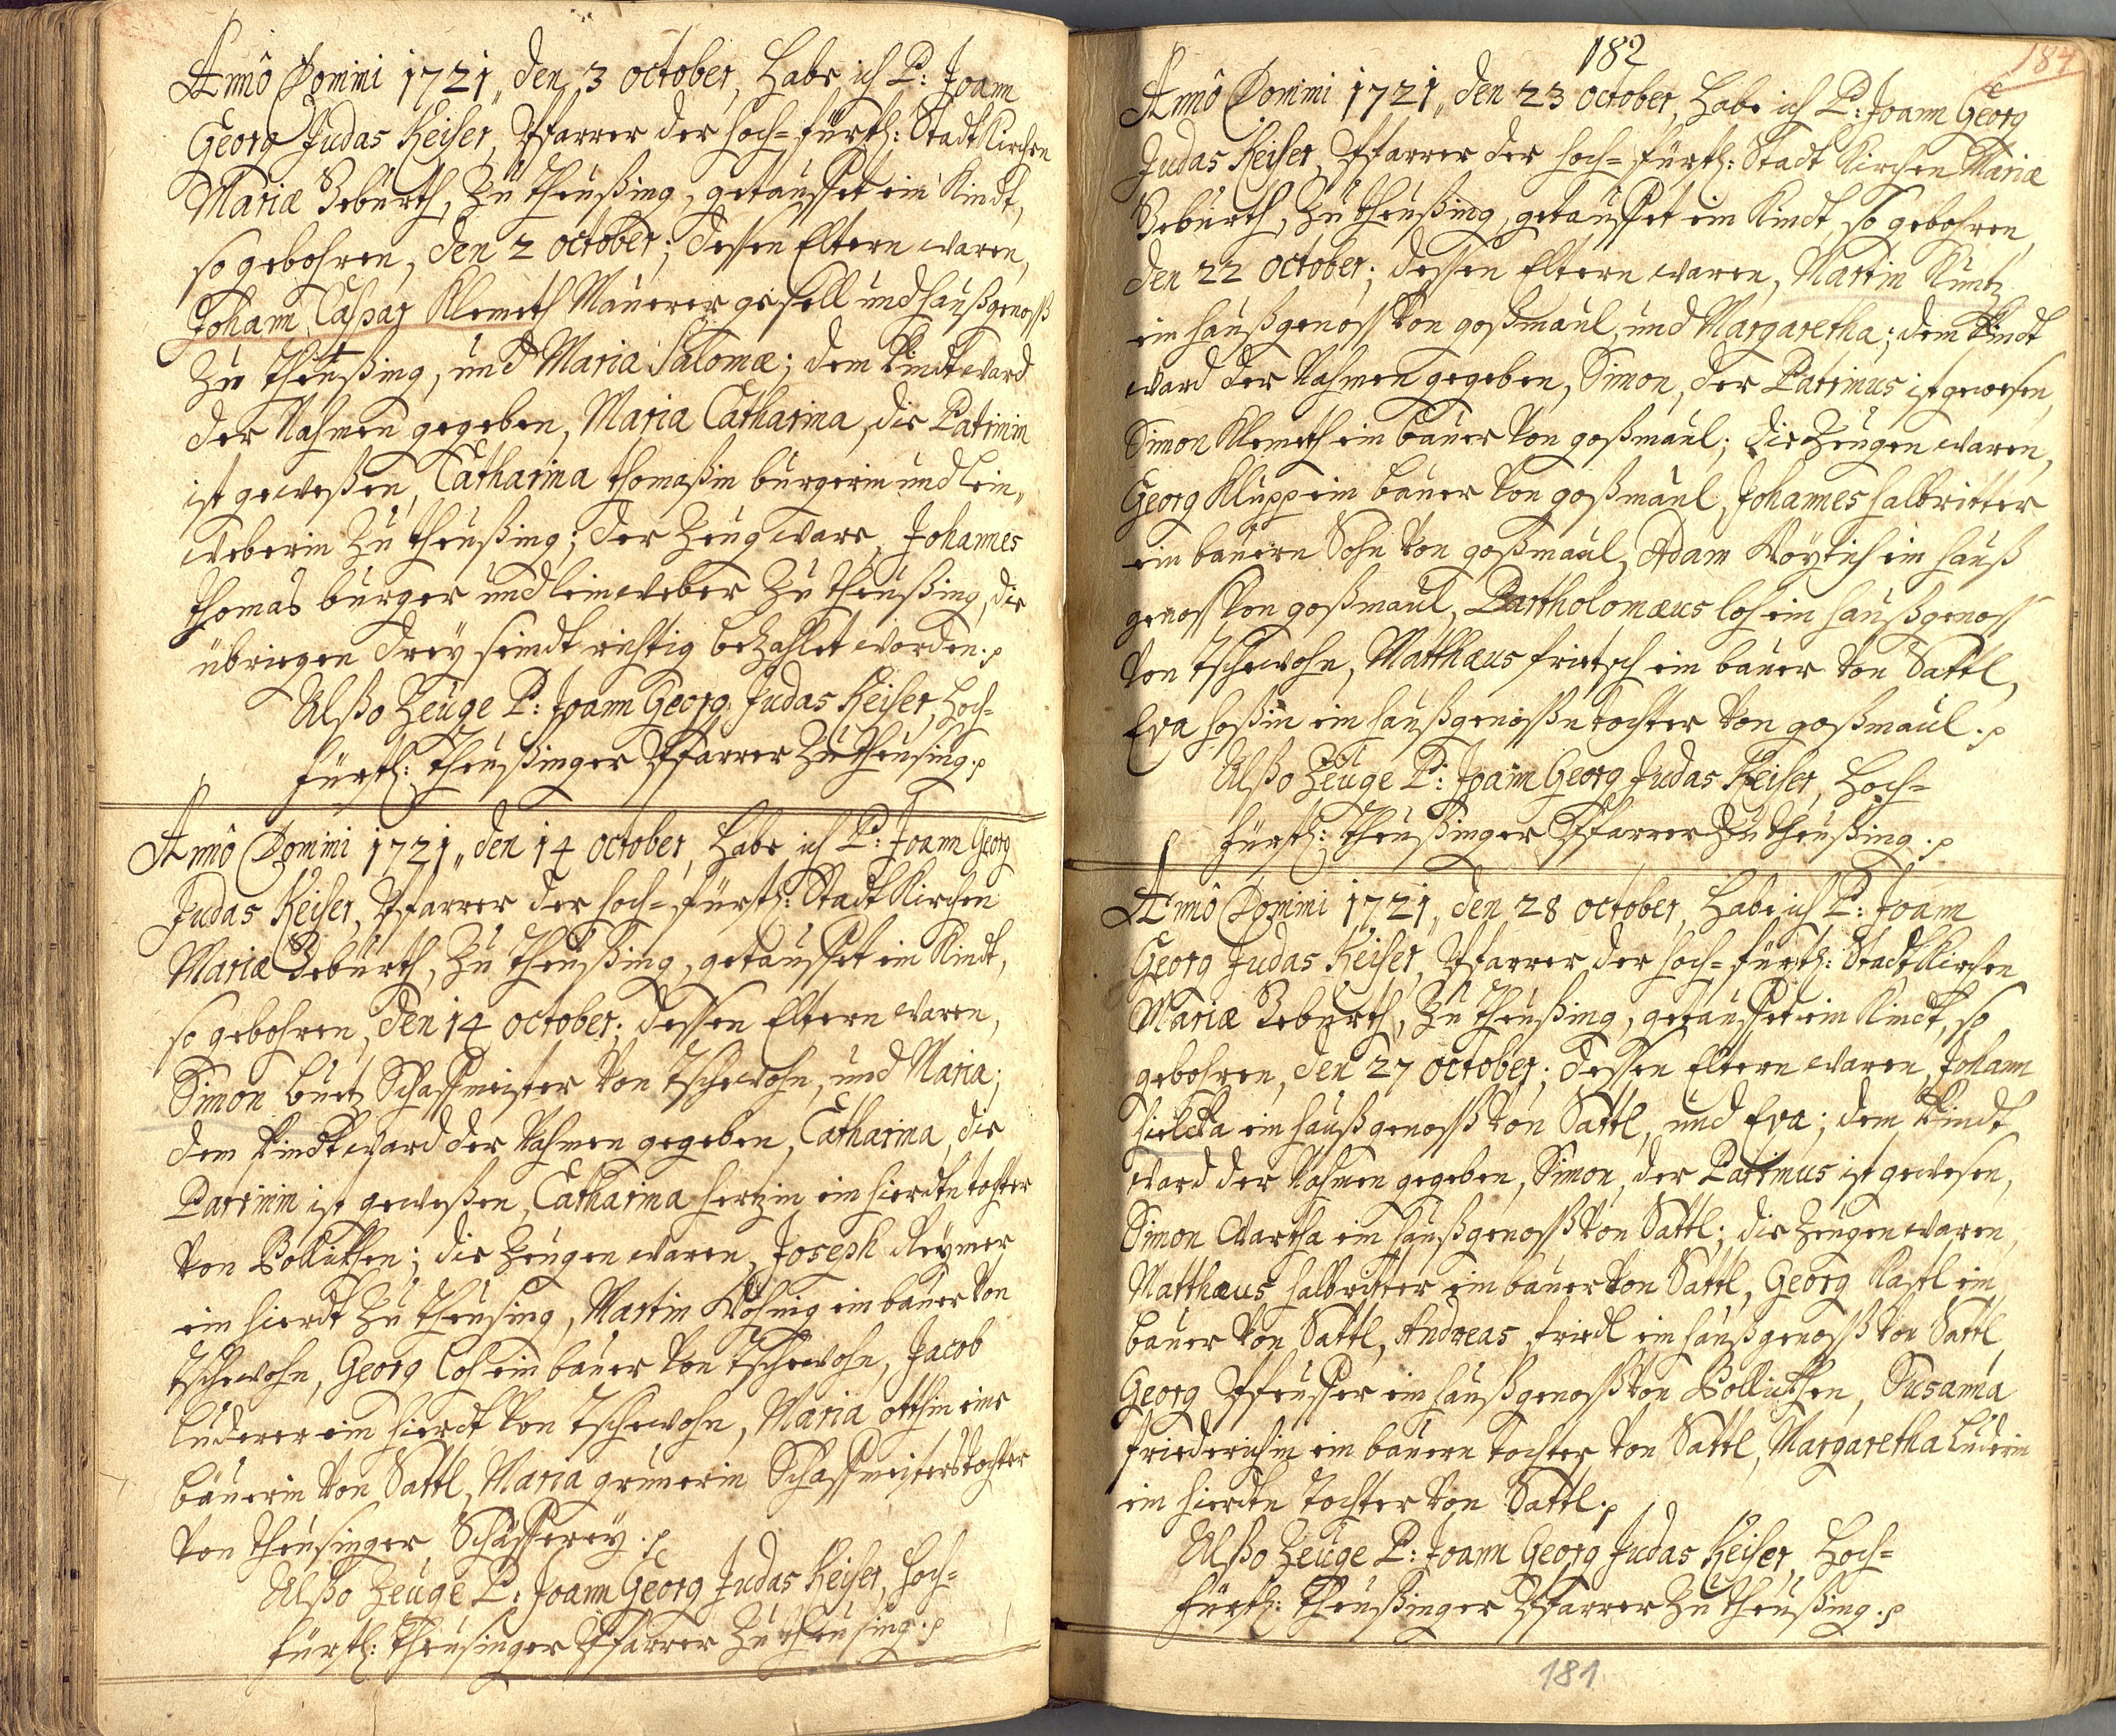 Annô Domini 1721, den 3 october, habe ich P: Joann
Georg Judas Keiser, Pfarrer der hoch=fürstl: Stadt Kirchen
Mariæ Gebürth, zu Theußing, getauffet ein Kindt,
so gebohren, den 2 october; dessen Eltern waren,
Johann Caspar Klemeth Mauerer gesell und haußgenoß
zu Theußing, und Maria Salomæ; dem Kindt ward
der Nahmen gegeben, Maria Catharina, die Patrinin
ist geweßen, Catharina Thomaßin burgerin und lein„
weberin zu Theußing; der Zeug ware, Johannes
Thomas burger und leinweber zu Theußing, die
übriegen drey seindt richtig bezahlet worden.
Alßo Zeuge P: Joann Georg Judas Keiser, hoch=
fürstl: Theußinger Pfarrer zu Theusing.
Annô Domini 1721, den 14 october, habe ich P: Joann Georg
Judas Keiser, Pfarrer der hoch=fürstl: Stadt Kirchen
Mariæ Gebürth, zu Theußing, getauffet ein Kindt,
so gebohren, den 14 october; dessen Eltern waren,
Simon Schaffmeister von Tschewohn, und Maria;
dem Kindt ward der Nahmen gegeben, Catharina, die
Patrinin ist geweßen, Catharina hertzin ein hierdtn tochter
von Pollikken; die Zeugen waren, Joseph Reymer
ein hierdt zu Theusing, Martin Böhmig ein bauer von
Tschewohn, Georg Loh ein bauer von Tschewohn, Jacob
Luderer ein hierdt von Tschewohn, Maria otthin eine
bäuerin von Sattl, Maria grunerin Schaffmeisterstochter
von Theusinger Schäfferey.
Alßo Zeuge P: Joann Georg Judas Keiser, hoch=
fürstl: Theusinger Pfarrer zu Theusing.
182
184
Annô Domini 1721, den 23 october, habe ich P: Joann Georg
Judas Keiser, Pfarrer der hoch=fürstl: Stadt Kirchen Mariæ
Gebürth, zu Theußing, getauffet ein Kindt, so gebohren,
den 22 october; dessen Eltern waren, Martin Kuntz
ein haußgenoss von goßmaul, und Margaretha; dem Kindt
ward der Nahmen gegeben, Simon, der Patrinus ist gewesen,
Simon Klemeth ein bauer von goßmaul; die Zeugen waren,
Georg Klupp ein bauer von goßmaul, Johannes halbritter
ein bauern Sohn von goßmaul, Adam Woytich ein hauß
genoss von goßmaul, Bartholomæus loh ein haußgenoss
von Tschewohn, Matthæus fritsch ein bauer von Sattl,
Eva hoßin ein haußgenoßn tochter von goßmaul.
Alßo Zeuge P: Joann Georg Judas Keiser, hoch=
fürstl: Theußinger Pfarrer zu Theußing.
Annô Domini 1721, den 28 october, habe ich P: Joann
Georg Judas Keiser, Pfarrer der hoch=fürstl: Stadt Kirchen
Mariæ Gebürth, zu Theußing, getauffet ein Kindt, so
gebohren, den 27 october; dessen Eltern waren, Johann
hielcka ein haußgenoß von Sattl, und Eva; dem Kindt
ward der Nahmen gegeben, Simon, der Patrinus ist gewesen,
Simon Wartha ein haußgenoß von Sattl; die Zeugen waren,
Matthæus halbritter ein bauer von Sattl, Georg Kastl ein
bauer von Sattl, Andreas friedl ein haußgenoß von Sattl,
Georg Pfeuffer ein haußgenoß von Pollikken, Susanna
friederichin ein bauern tochter von Sattl, Margaretha Luderin
ein hierdtn tochter von Sattl.
Alßo Zeuge P: Joann Georg Judas Keiser, hoch=
fürstl: Theußinger Pfarrer zu Theußing.
181